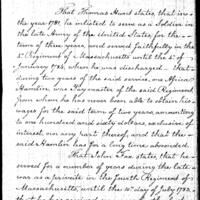 That Thomas Hurd states, that in
the year 1781, he inlisted to serve as a Soldier in
the late Army of the United States, for the
term of three years, and served faithfully in the
Regiment of Massachusetts until the 1st of
January 1784, when he was discharged. That
during two years of the said service, one Africa
Hamlin, was Paymaster of the said Regiment
from whom he has never been able to obtain his
wages for the said term of two years, amounting
to one hundred and sixty dollars, exclusive of
interest, nor any part thereof, and that the
said Hamlin has for a long time absconded.
That John Fox, states, that he
served for a number of years during the late
war as a private in the fourth Regiment of
Massachusetts, until the 10th day of July 1782,